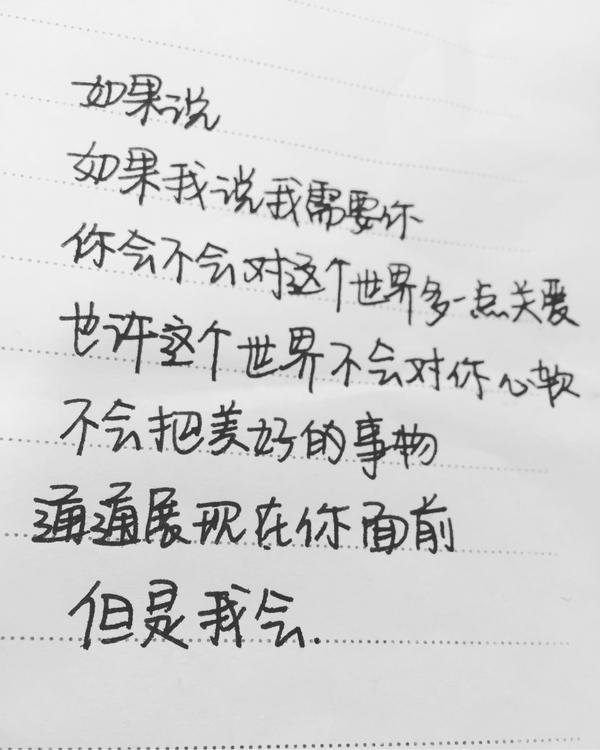 如果说
如果我说我需要你
你会不会对这个世界多一点关爱
也许这个世界不会对你心软
不会把美好的事物
通通展现在你面前
但是我会.